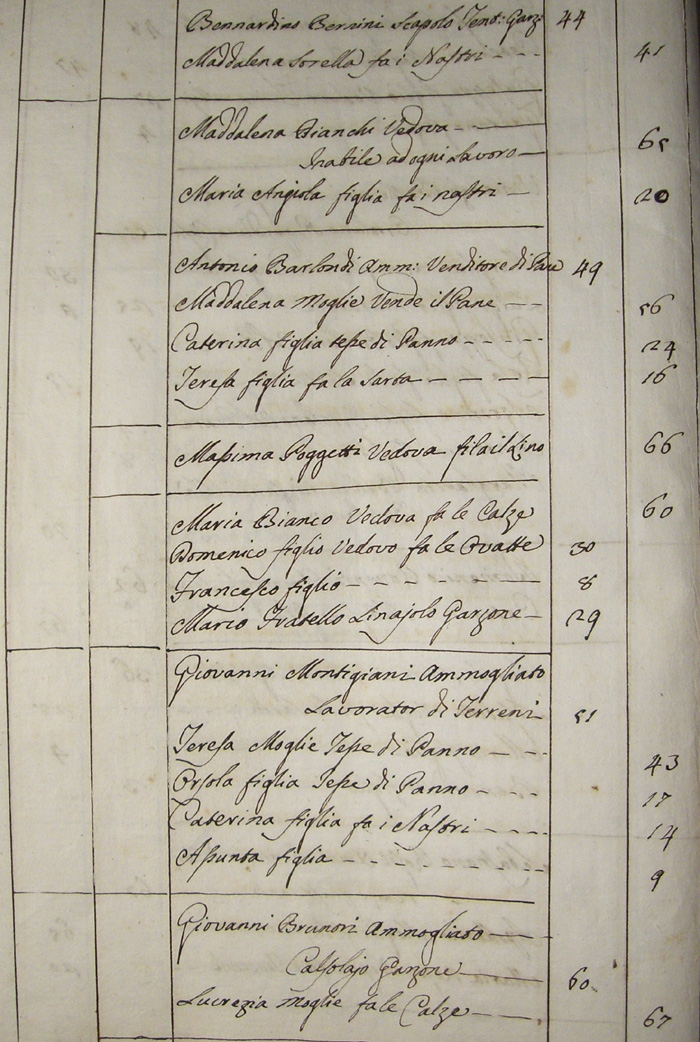 Bennardino Bernini Scapolo Tent: Garz: 44
Maddalena Sorella fa i Nastri - - - 41
Maddalena Bianchi Vedova -
Inabile ad ogni Lavoro - 65
Maria Angiola figlia fa i nastri - 20
Antonio Barlondi Amm: Venditore di Pane 49
Maddalena Moglie Vende il Pane - - 56
Caterina figlia tesse di Panno - - - - - 24
Teresa figlia fa la Sarta - - - - 16
Massima Poggetti Vedova fila il Lino 66
Maria Bianco Vedova fa le Calze 60
Domenico figlio Vedovo fa le Ovatte 30
Francesco figlio - - - - - 8
Mario Fratello Linajolo Garzone - 29
Giovanni Montigiani Ammogliato
Lavorator di Terreni 51
Teresa Moglie Tesse di Panno - - - 43
Orsola figlia Tesse di Panno - - - 17
Caterina figlia fa i Nastri - - - - 14
Assunta figlia - - - - - - - 9
Giovanni Brunori Ammogliato -
Calsolajo Garzone - 60
Lucrezia Moglie fa le Calze - 67